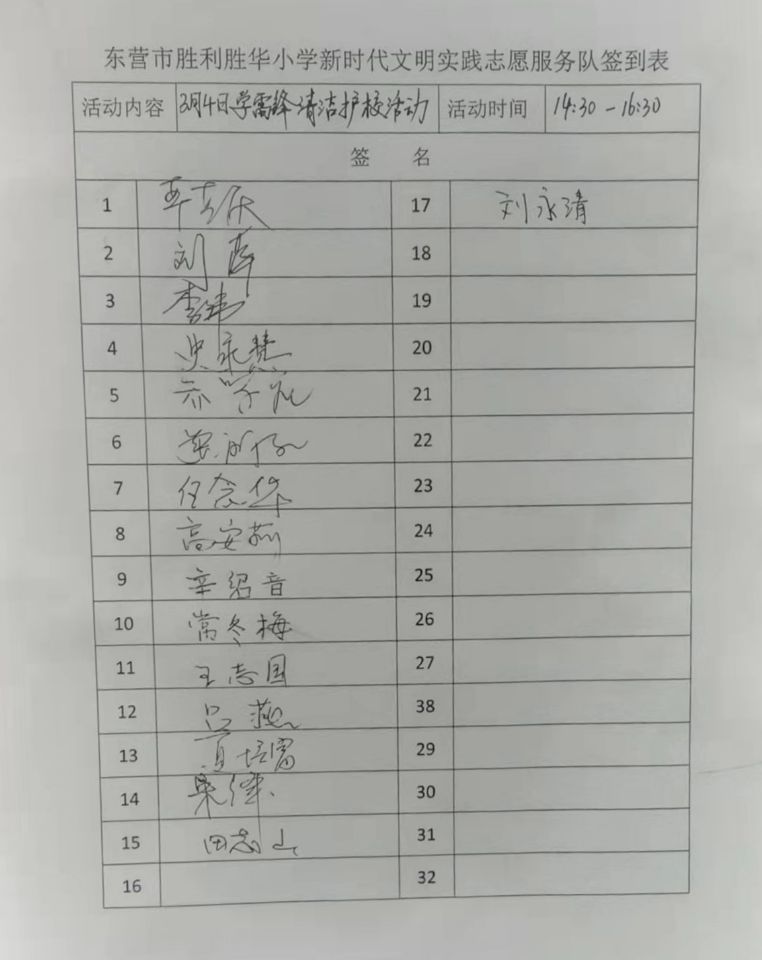 东营市胜利胜华小学新时代文明实践志愿服务队签到表
活动内容 3月4日学雷锋清洁护校活动 活动时间 14:30-16:30
签 名
1 17 刘永清
2 刘 18
3 李玮 19
4 史永慧 20
5 21
6 22
7 任念华 23
8 高安燕 24
9 辛绍音 25
10 常冬梅 26
11 王志国 27
12 吕燕 38
13 夏培富 29
14 30
15 田志山 31
16 32